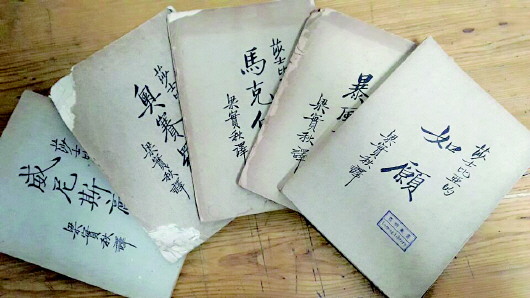 莎士
威尼斯商
梁實秋譯
莎士比
奧賽
梁實秋譯
莎士
馬克
梁實秋譯
暴
梁實秋譯
莎士比亞的
如願
梁實秋譯